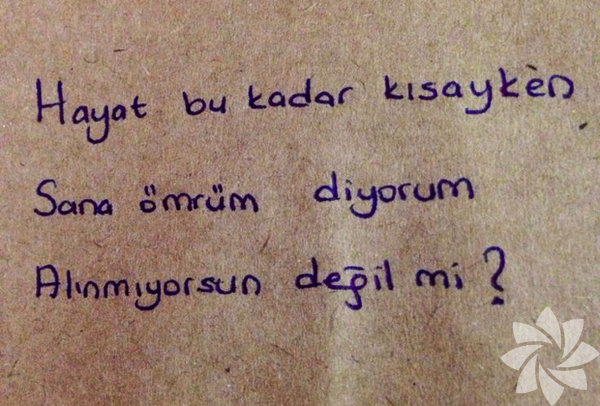 Hayat bu kadar kısayken
Sana ömrüm diyorum
Alınmıyorsun değil mi?